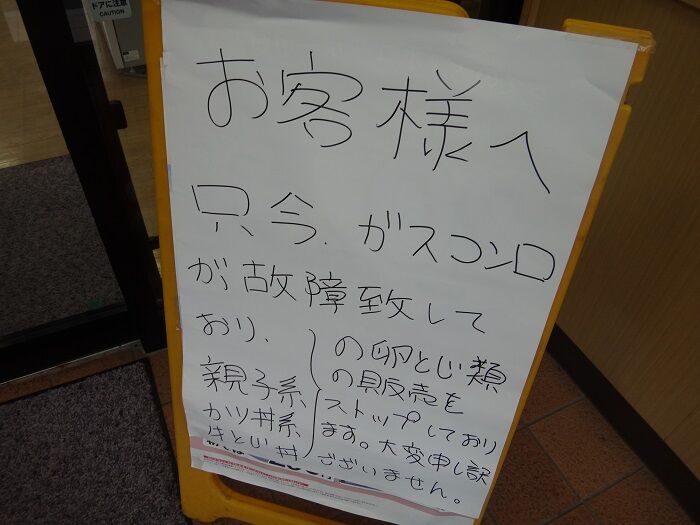 ドアに注意
CAUTION
お客様へ
只今、ガスコンロ
が故障致して
おり、
親子系
カツ丼系
牛とじ丼
の卵とじ類
の販売を
ストップしており
ます。大変申し訳
ございません。